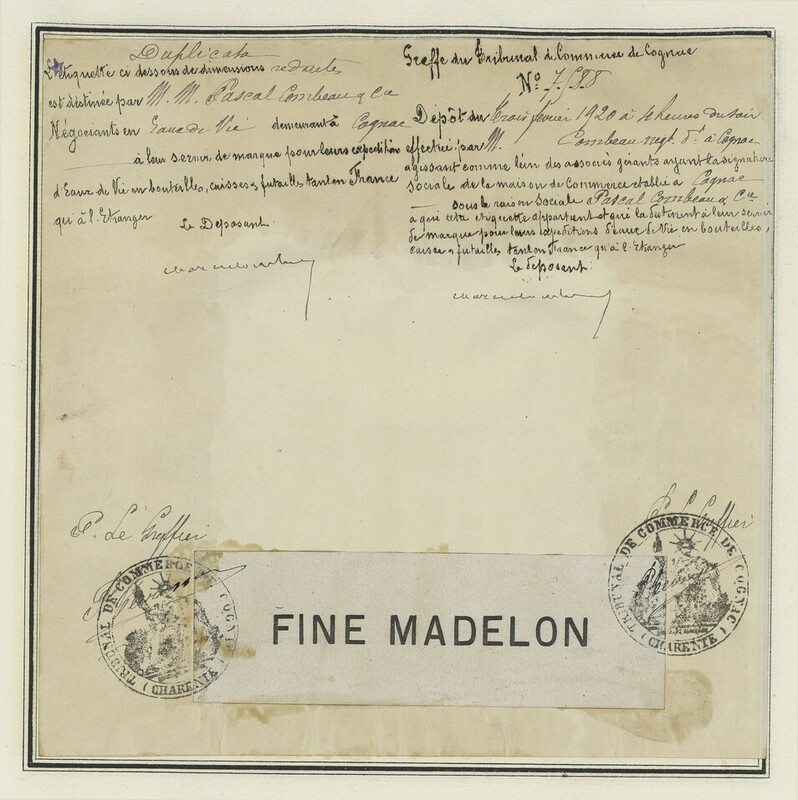 Duplicata
L'étiquette ci dessous de dimensions réduites
est destinée par M. M. Pascal Combeau & Cie
Négociants en Eaux de Vie demeurant à Cognac
à leur servir de marque pour leurs expéditions
d'Eaux de Vie en bouteilles, caisses & futailles tant en France
qu'à l'Etranger
Le Déposant
Greffe du Tribunal de Commerce de Cognac
No 7.588
Dépôt du trois février 1920 à 4 heures du soir
effectué par M. Combeau negt. dt. à Cognac
agissant comme l'un des associés gérants ayant la signature
sociale de la maison de Commerce établie à Cognac
sous la raison Sociale Pascal Combeau & Cie
à qui cette étiquette appartient et qui la destinent à leur servir
de marque pour leurs expéditions d'eaux de Vie en bouteilles,
caisses & futailles tant en France qu'à l'Etranger
Le déposant
P. Le Greffier
P. Le Greffier
TRIBUNAL DE COMMERCE DE COGNAC
(CHARENTE)
FINE MADELON
TRIBUNAL DE COMMERCE DE COGNAC
(CHARENTE)